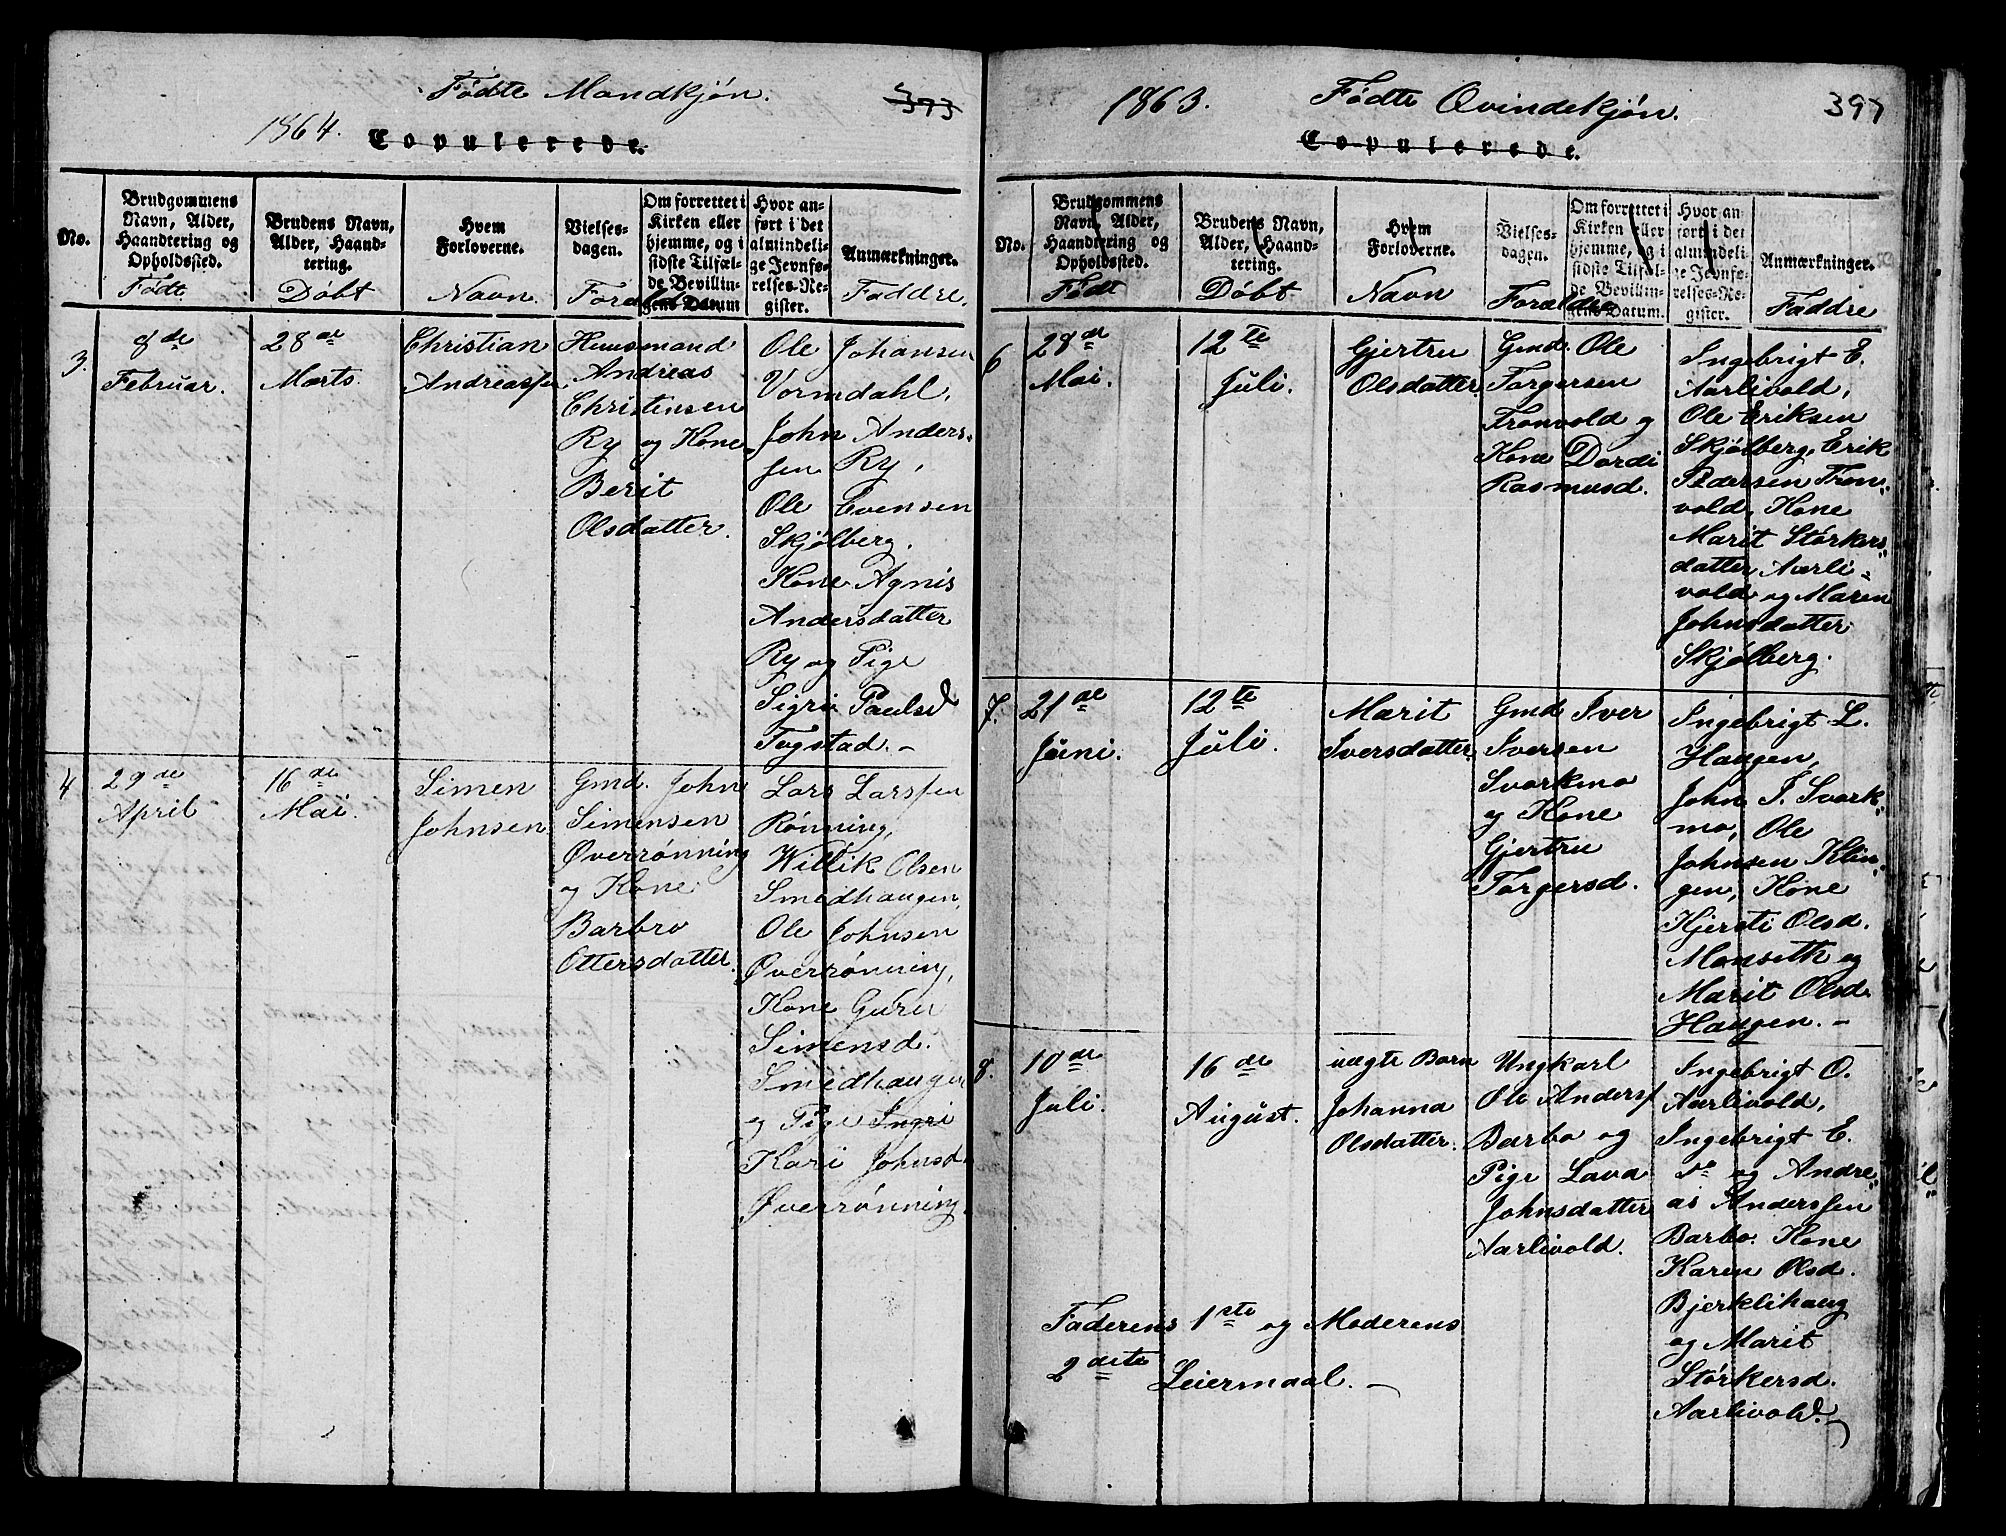 Fødte Mandkjøn.
373
1864.
Copulerede.
No.
Brudgommens
Navn, Alder,
Haandtering og
Opholdssted.
Brudens Navn,
Alder, Haand-
tering.
Hvem
Forloverne.
Vielses-
dagen.
Om forrettet i
Kirken eller
hjemme, og i
sidste Tilfæl-
de Bevillin-
gens Datum
Hvor an-
ført i det
almindeli-
ge Jevnfø-
relses-Re-
gister.
Anmærkninger.
Født
Døbt
Navn
Forældre
Faddre.
3.
8de
Februar.
28de
Marts.
Christian
Andreassen
Huusmand
Andreas
Christensen
Ry og Kone
Berit
Olsdatter.
Ole Johansen
Vormdahl,
John Anders-
sen Ry,
Ole Evensen
Skjølberg.
Kone Agnis
Andersdatter
Ry og Pige
Sigri Paulsd
Togstad. –
4
29de
April
16de
Mai.
Simen
Johnsen
Gmd. John
Simensen
Øverrønning
og Kone
Barbro
Ottersdatter.
Lars Larssen
Rønning,
Willik Olsen
Smedhaugen,
Ole Johnsen
Øverrønning,
Kone Guru
Simensd.
Smedhaugen
og Pige Ingri
Kari Johnsd.
Øverrønning.
1863.
Fødte Qvindekjøn.
397
Copulerede.
No.
Brudgommens
Navn, Alder,
Haandtering og
Opholdssted.
Brudens Navn,
Alder, Haand-
tering.
Hvem
Forloverne.
Vielses-
dagen.
Om forrettet i
Kirken eller
hjemme, og i
sidste Tilfæl-
de Bevillin-
gens Datum.
Hvor an-
ført i det
almindeli-
ge Jevnfø-
relses-Re-
gister.
Anmærkninger.
Født
Døbt
Navn
Forældre
Faddre
6
28de
Mai.
12te
Juli.
Gjertru
Olsdatter
Gmd. Ole
Torgersen
Tronvold og
Kone Dordi
Rasmusd.
Ingebrigt E.
Aarlivold,
Ole Eriksen
Skjølberg, Erik
Pedersen Tron-
vold, Kone
Marit Størkers-
datter Aarli-
vold og Maren
Johnsdatter
Skjølberg.
7.
21de
Juni.
12te
Juli.
Marit
Iversdatter
Gmd Iver
Iversen
Svorkmo
og Kone
Gjertru
Torgersd.
Ingebrigt L.
Haugen,
John I. Svork-
mo, Ole
Johnsen Klin-
gen, Kone
Kjersti Olsd.
Monseth og
Marit Olsd.
Haugen. –
8.
10de
Juli.
16de
August.
uægte Barn
Johanna
Olsdatter.
Ungkarl
Ole Anderss
Barbo og
Pige Lava
Johnsdatter
Aarlivold.
Ingebrigt O.
Aarlivold,
Ingebrigt E.
do og Andre-
as Anderssen
Barbo. Kone
Karen Olsd.
Bjerklihaug
og Marit
Størkersd.
Aarlivold.
Faderens 1ste og Moderens
2det Leiermaal. –